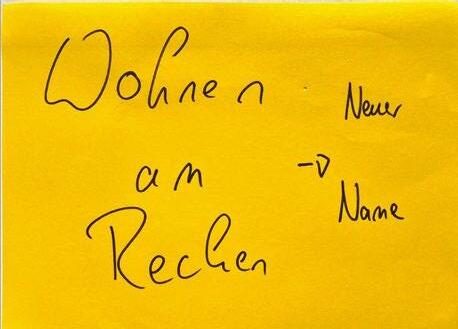 Wohnen
an
Rechen
Neuer
→ Name